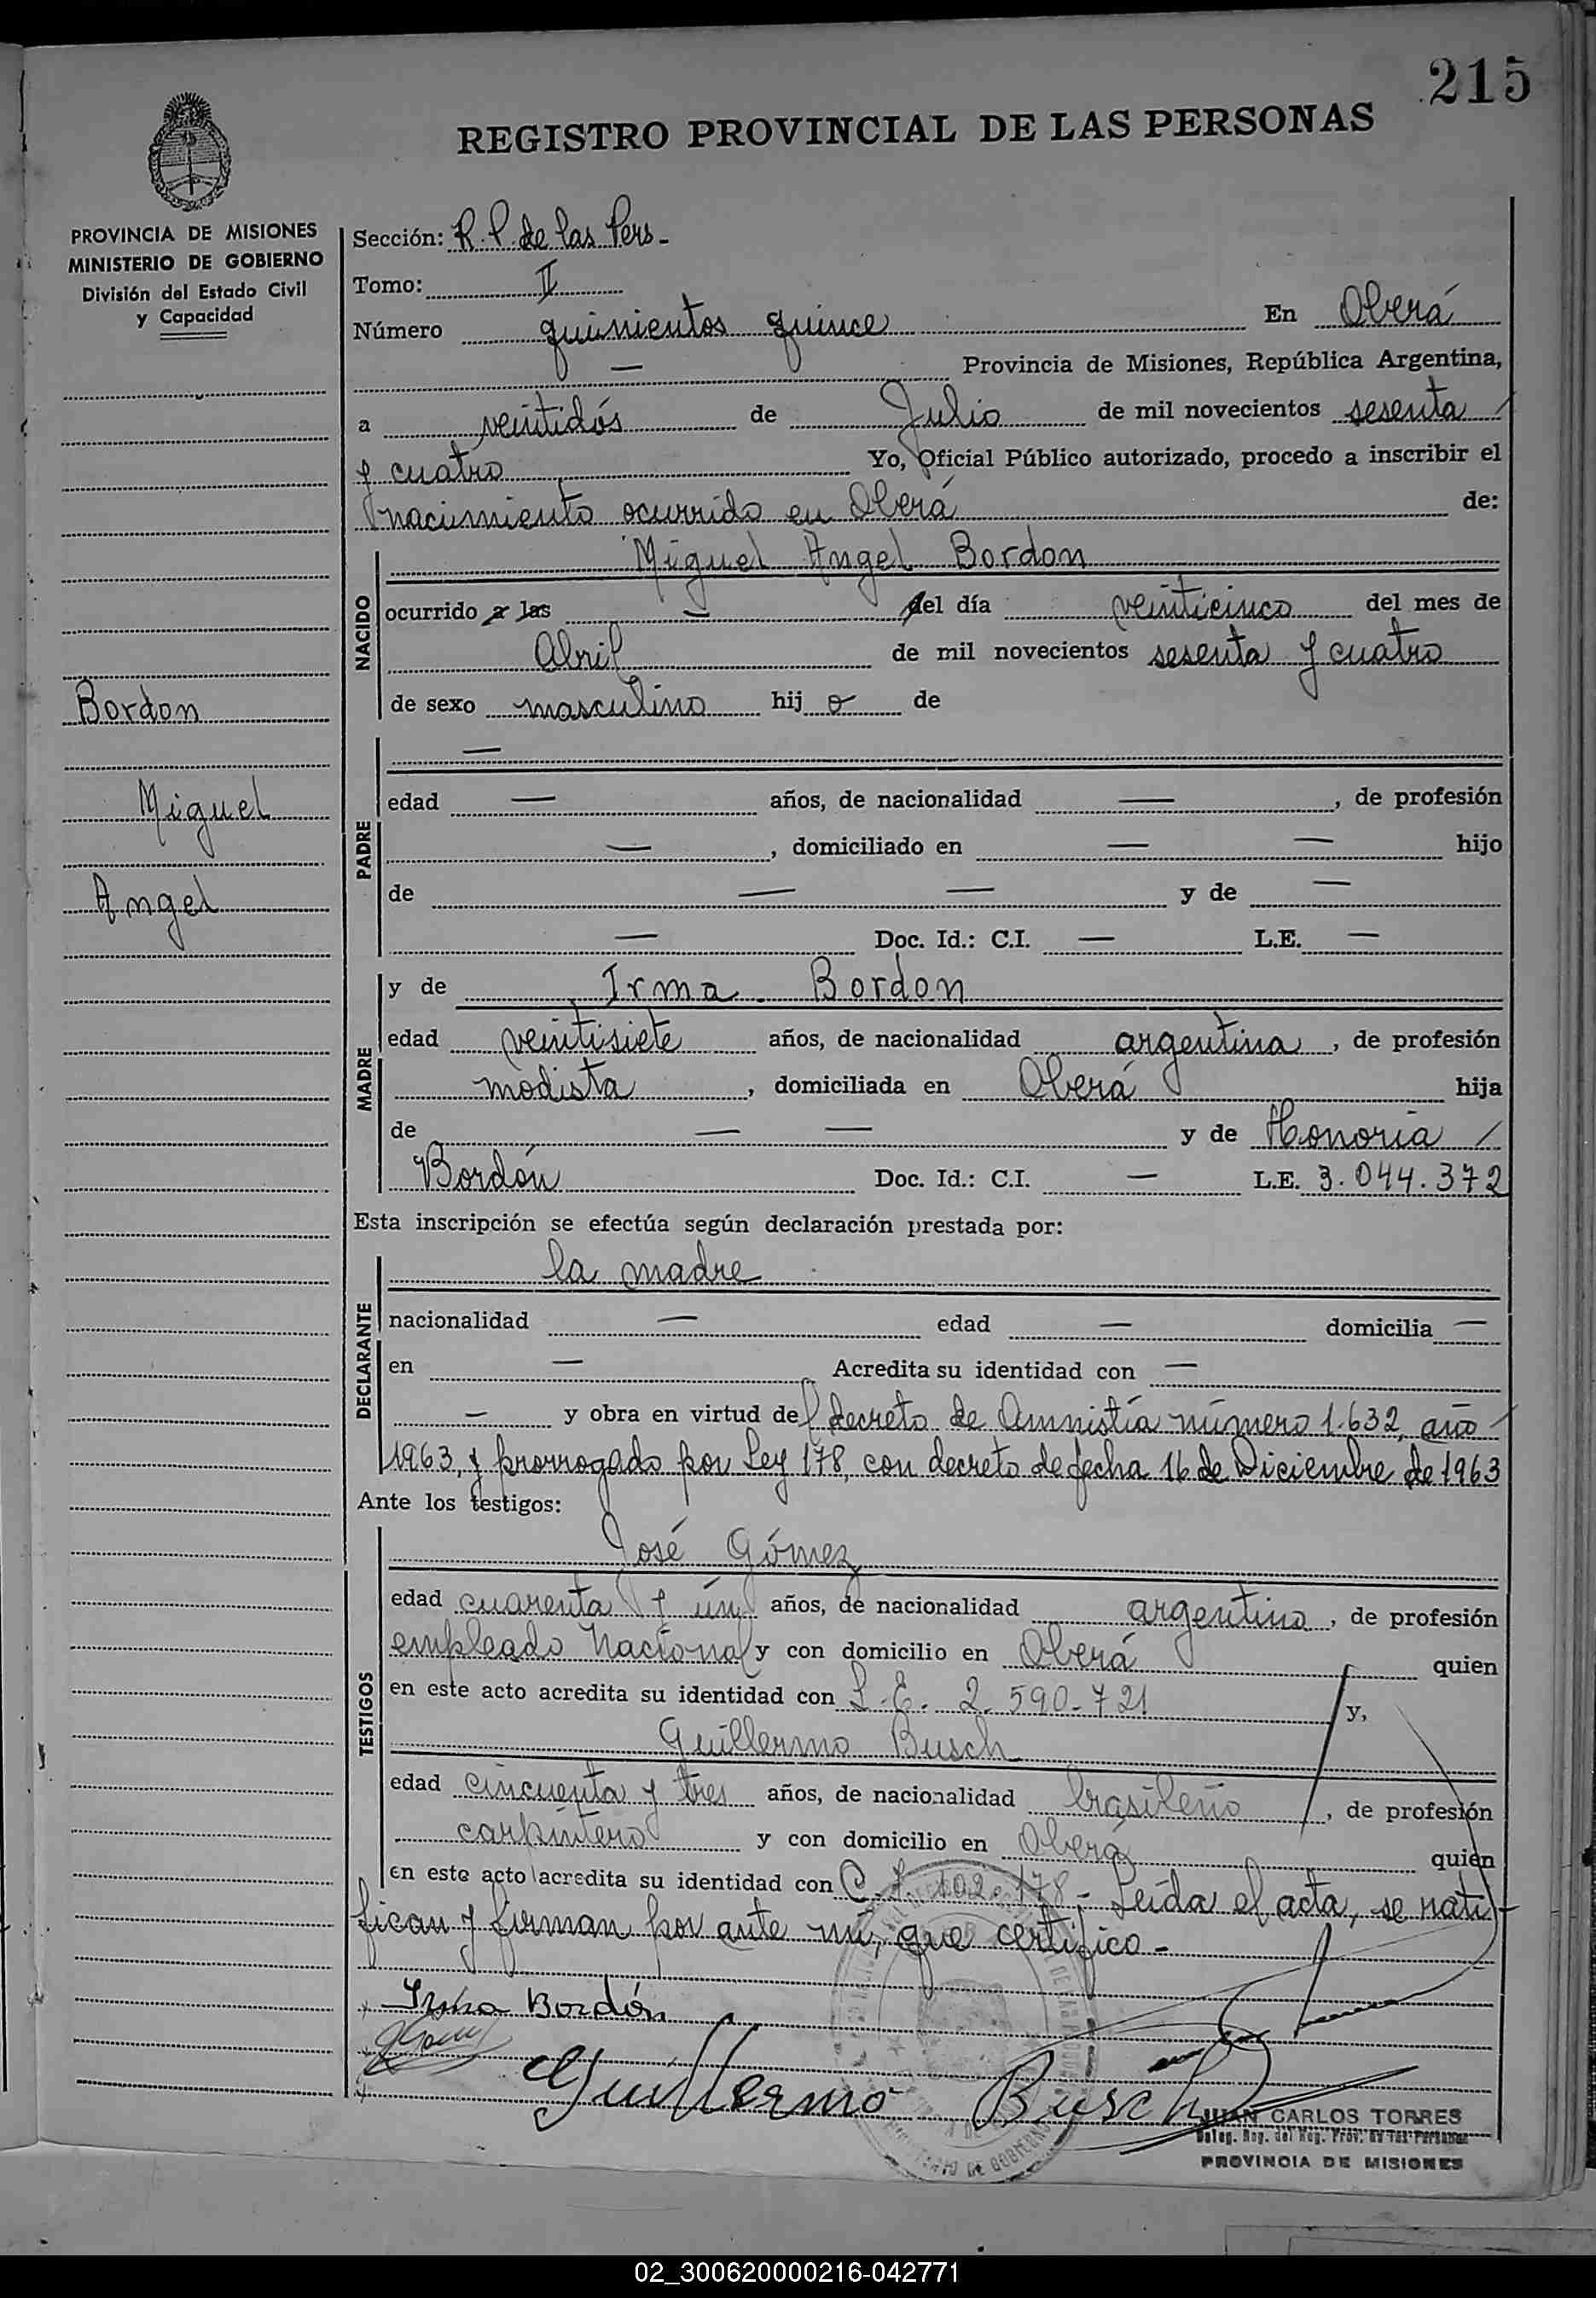 215
REGISTRO PROVINCIAL DE LAS PERSONAS
PROVINCIA DE MISIONES
MINISTERIO DE GOBIERNO
División del Estado Civil
y Capacidad
Bordon
Miguel
Angel
Sección: R. P. de las Pers-
Tomo: II
Número quinientos quince En Oberá
— Provincia de Misiones, República Argentina,
a veintidós de Julio de mil novecientos sesenta /
y cuatro Yo, Oficial Público autorizado, procedo a inscribir el
nacimiento ocurrido en Oberá de:
NACIDO
Miguel Angel Bordon
ocurrido a las — del día veinticinco del mes de
Abril de mil novecientos sesenta y cuatro
de sexo masculino hij o de
PADRE
—
edad — años, de nacionalidad —, de profesión
—, domiciliado en — — hijo
de — — y de —
— Doc. Id.: C.I. — L.E. —
MADRE
y de Irma Bordon
edad veintisiete años, de nacionalidad argentina, de profesión
modista, domiciliada en Oberá hija
de — — y de Honoria /
Bordón Doc. Id.: C.I. — L.E. 3.044.372
Esta inscripción se efectúa según declaración prestada por:
DECLARANTE
la madre
nacionalidad — edad — domicilia —
en — Acredita su identidad con —
— y obra en virtud del decreto de Amnistía número 1.632, año /
1963, y prorrogado por Ley 178, con decreto de fecha 16 de Diciembre de 1963
Ante los testigos:
TESTIGOS
José Gómez
edad cuarenta y ún años, de nacionalidad argentino, de profesión
empleado Nacional y con domicilio en Oberá quien
en este acto acredita su identidad con L.E. 2.590-721 y,
Guillermo Busch
edad cincuenta y tres años, de nacionalidad brasileño, de profesión
carpintero y con domicilio en Oberá quien
en este acto acredita su identidad con C.I. 102.178- Leída el acta, se rati-
fican y firman por ante mí, que certifico-
Irma Bordón
Guillermo Busch
JUAN CARLOS TORRES
PROVINCIA DE MISIONES
02_300620000216-042771